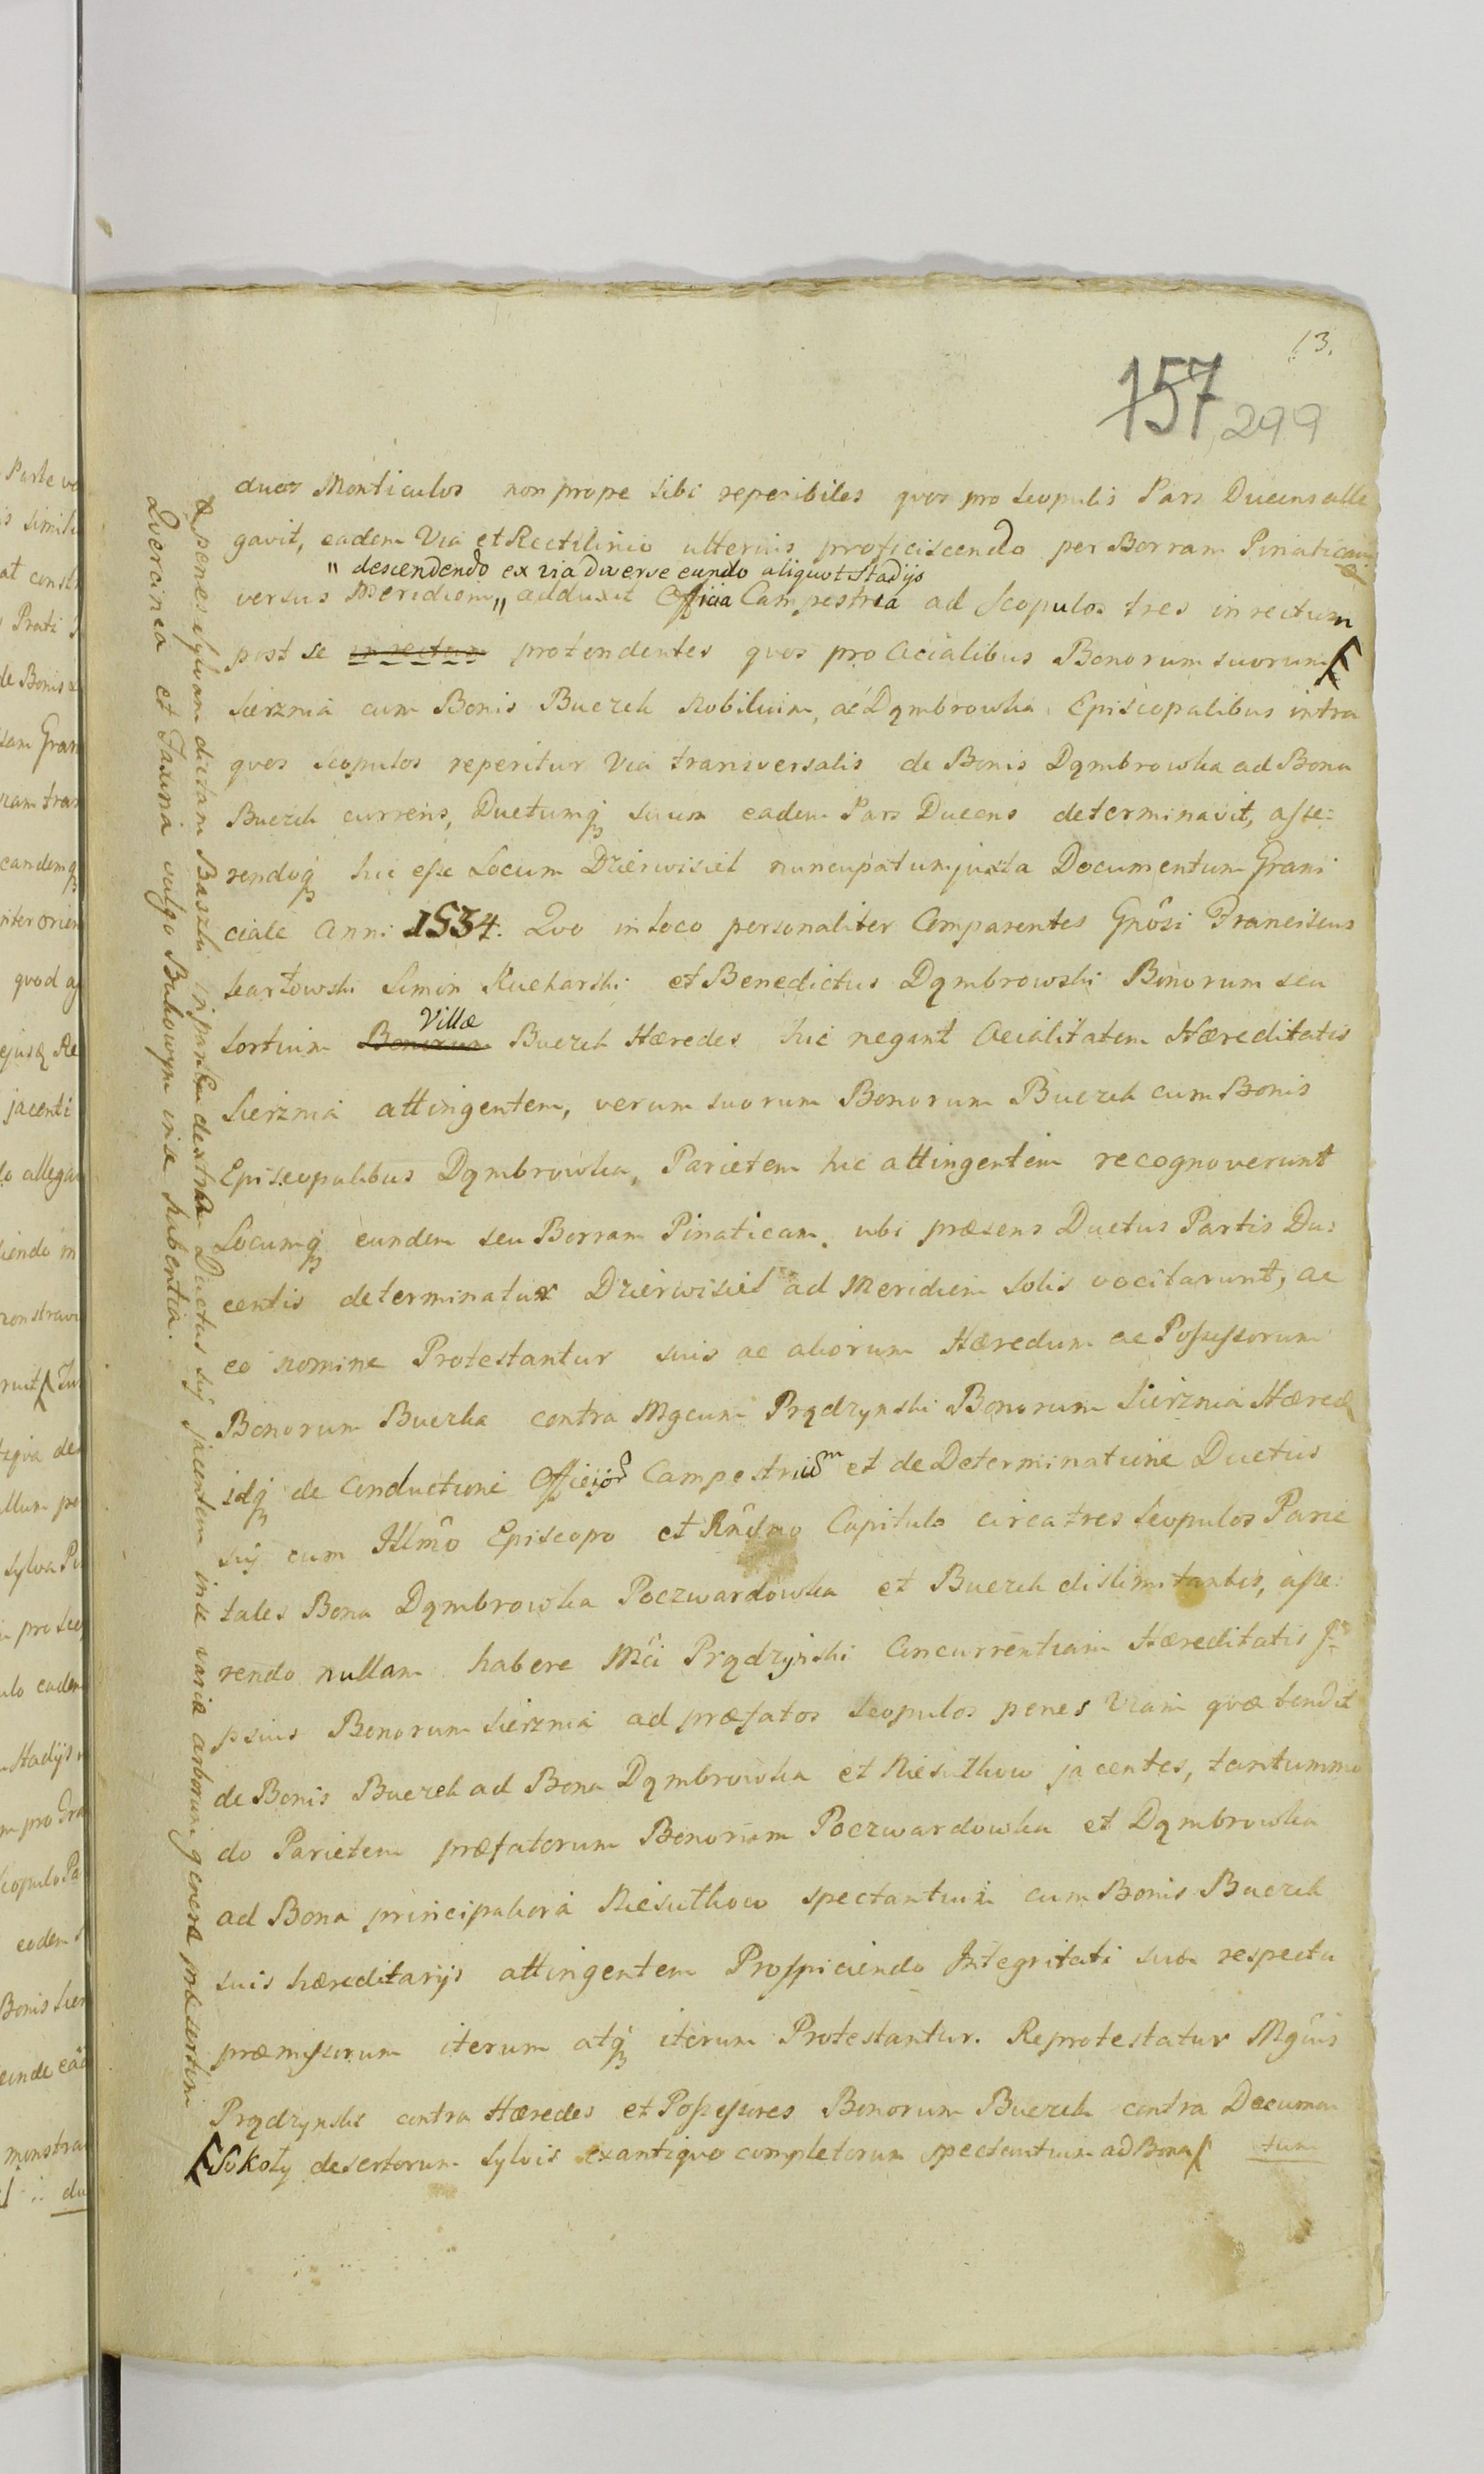 13.
157, 299
duos Monticulos non prope sibi reperibiles quos pro Scopulis Pars Ducens alle
gavit, eadem Via et Rectilinio ulterius proficiscendo per Borram Pinaticam
" descendendo ex via diverse eundo aliquot Stadijs
versus Meridiem " adduxit Officia Campestria ad Scopulos tres in rectum
post se in rectum protendentes quos pro Acialibus Bonorum suorum
Sierznia cum Bonis Buczek Nobilium, ac Dąmbrowka Episcopalibus intra
quos Scopulos reperitur Via transversalis de Bonis Dąmbrowka ad Bona
Buczek currens, Ductumq suum eadem Pars Ducens determinavit, asse=
rendoq hic esse Locum Dzierwisiet nuncupatum juxta Documentum Grani
ciale Anni 1534. Quo in loco personaliter Comparentes Gnôsi Franciscus
Simon Kucharski et Benedictus Dąmbrowski Bonorum seu
Villæ
Sortium Bonorum Buczek Hæredes hic negant Acialitatem Hæreditatis
Sierznia attingentem, verum suorum Bonorum Buczek cum Bonis
Episcopalibus Dąmbrowka, Parietem hic attingentem recognoverunt
Locumq eundem seu Borram Pinaticam, ubi præsens Ductus Partis Du=
centis determinatur Dzierwisiet ad Meridiem Solis vocitarunt, ac
eo nomine Protestantur suis ac aliorum Hæredum ac Possessorum
Bonorum Buczka contra Mgcum Prądzynski Bonorum Sierznia Hæredem
idq de Conductione Officior Campestrium et de Determinatione Ductus
sui cum Illmo Episcopo et Rndmo Capitulo circa tres Scopulos Parie
tales Bona Dąmbrowka Poczwardowka et Buczek dislimitantes, asse=
rendo nullam habere Mci Prądzynski Concurrentiam Hæreditatis I=
psius Bonorum Sierznia ad præfatos Scopulos penes Viam quæ tendit
de Bonis Buczek ad Bona Dąmbrowka et Niesułkow jacentes, tantummo
do Parietem præfatorum Bonorum Poczwardowka et Dąmbrowka
ad Bona principaliora Niesułkow spectantium cum Bonis Buczek
suis hæreditarijs attingentem Prospiciendo Integritati suæ respectu
præmissorum iterum atq iterum Protestantur. Reprotestatur Mgcus
Prądzynski contra Hæredes et Possessores Bonorum Buczek contra Documen
tum
Sokoły desertorum Sylvis ex antiquo completorum spectantium ad Bona
penes sylvam dictam Baszki in parte dextra Ductus sui jacentem in se varia arborum genera præsertim
Quercinea et Faxina vulgo Bukowym in se habentia.